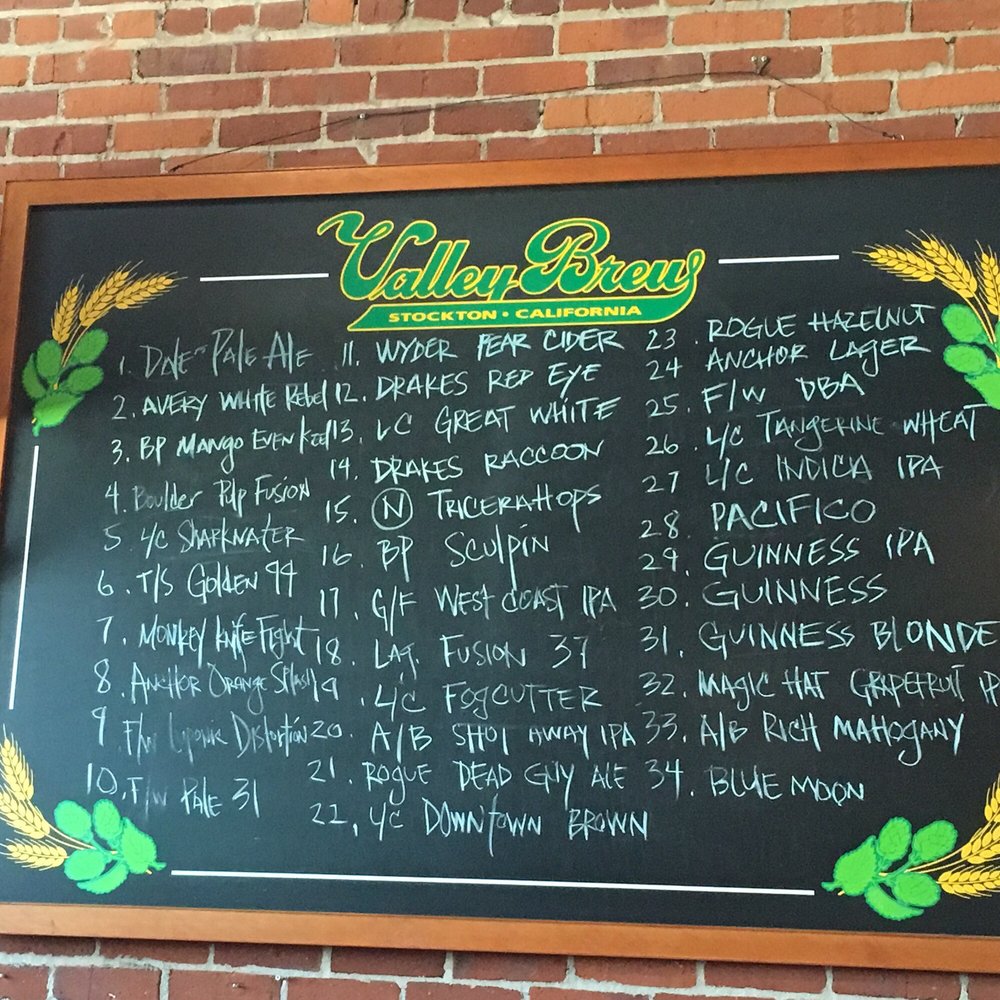 Valley Brew
STOCKTON • CALIFORNIA
1. Dale's Pale Ale
2. AVERY WHITE Rebel
3. BP MANGO EVEN KEEL
4. Boulder Pulp Fusion
5 L/C SHARKNATER
6. T/S Golden 94
7. MONKEY Knife Fight
8. ANCHOR ORANGE Splash
9 F/W Luponic Distortion
10. F/W PALE 31
11. WYDER PEAR CIDER
12. DRAKES RED EYE
13. LC GREAT WHITE
14. DRAKES RACCOON
15. N TRICERAHOPS
16. BP SCULPIN
17. G/F WEST COAST IPA
18. LAG. FUSION 37
19 L/C FOGCUTTER
20. A/B SHOT AWAY IPA
21. ROGUE DEAD GUY ALE
22, L/C DOWNTOWN BROWN
23. ROGUE HAZELNUT
24 ANCHOR LAGER
25. F/W DBA
26. L/C TANGERINE WHEAT
27 L/C INDICA IPA
28. PACIFICO
29. GUINNESS IPA
30. GUINNESS
31. GUINNESS BLONDE
32. MAGIC HAT GRAPEFRUIT IP
33. A/B RICH MAHOGANY
34. BLUE MOON